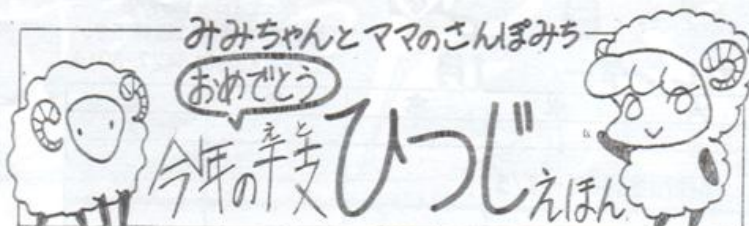 みみちゃんとママのさんぽみち
おめでとう
えと
今年の羊支ひつじえほん